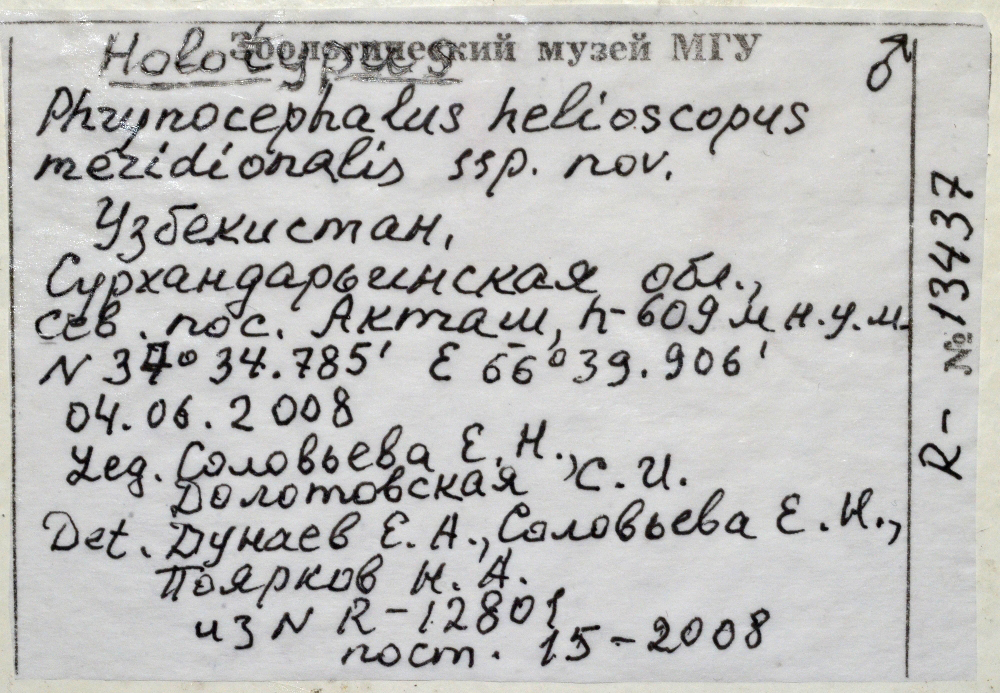 Зоологический музей МГУ
Holotypus ♂
Phrynocephalus helioscopus
meridionalis ssp. nov.
Узбекистан,
Сурхандарьинская обл.,
сев. пос. Акташ, h-609 м н.у.м.
N 37° 34.785' E 66° 39.906'
04.06.2008
Leg. Соловьева Е.Н.,
Долотовская С.И.
Det. Дунаев Е.А., Соловьева Е.Н.,
Поярков Н.А.
из N R-12801
пост. 15-2008
R- №13437